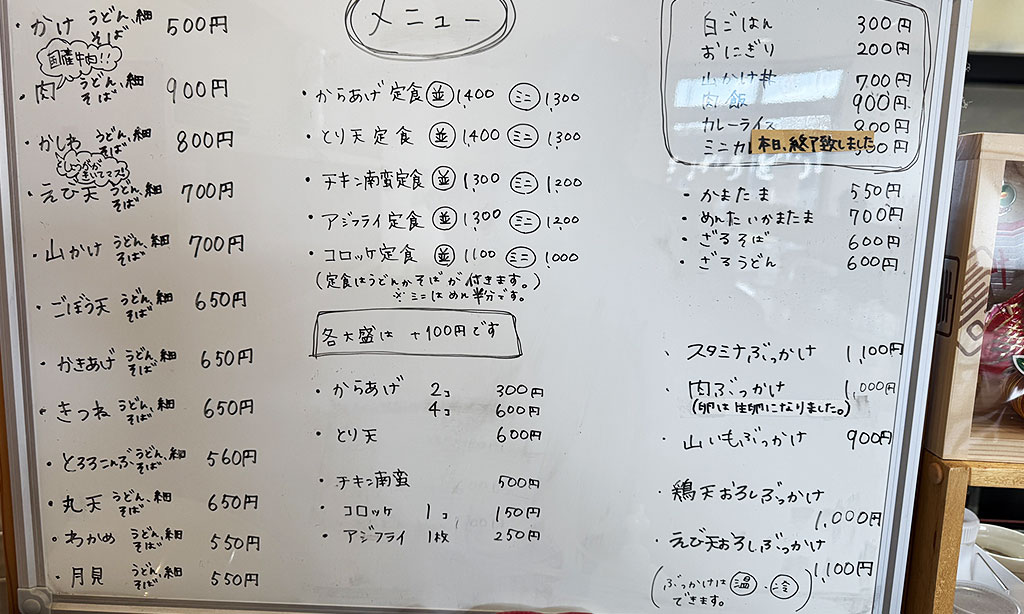 メニュー
・かけ うどん、細 そば 500円
国産牛肉!!
・肉 うどん、細 そば 900円
・かしわ うどん、細 そば 800円
しょうがが
きいてマス!
・えび天 うどん、細 そば 700円
・山かけ うどん、細 そば 700円
・ごぼう天 うどん、細 そば 650円
・かきあげ うどん、細 そば 650円
・きつね うどん、細 そば 650円
・とろろこんぶ うどん、細 そば 560円
・丸天 うどん、細 そば 650円
・わかめ うどん、細 そば 550円
・月見 うどん、細 そば 550円
・からあげ定食 並 1,400 ミニ 1,300
・とり天定食 並 1,400 ミニ 1,300
・チキン南蛮定食 並 1,300 ミニ 1,200
・アジフライ定食 並 1,300 ミニ 1,200
・コロッケ定食 並 1,100 ミニ 1,000
(定食はうどんかそばが付きます。)
※ミニはめん半分です。
各大盛は +100円です
・からあげ 2コ 300円
4コ 600円
・とり天 600円
・チキン南蛮 500円
・コロッケ 1コ 150円
・アジフライ 1枚 250円
白ごはん 300円
おにぎり 200円
山かけ丼 700円
肉飯 900円
カレーライス 800円
ミニカレ
本日、終了致しました
・かまたま 550円
・めんたいかまたま 700円
・ざるそば 600円
・ざるうどん 600円
・スタミナぶっかけ 1,100円
・肉ぶっかけ 1,000円
(卵は生卵になりました。)
・山いもぶっかけ 900円
・鶏天おろしぶっかけ
1,000円
・えび天おろしぶっかけ
1,100円
(ぶっかけは 温・冷
できます。)